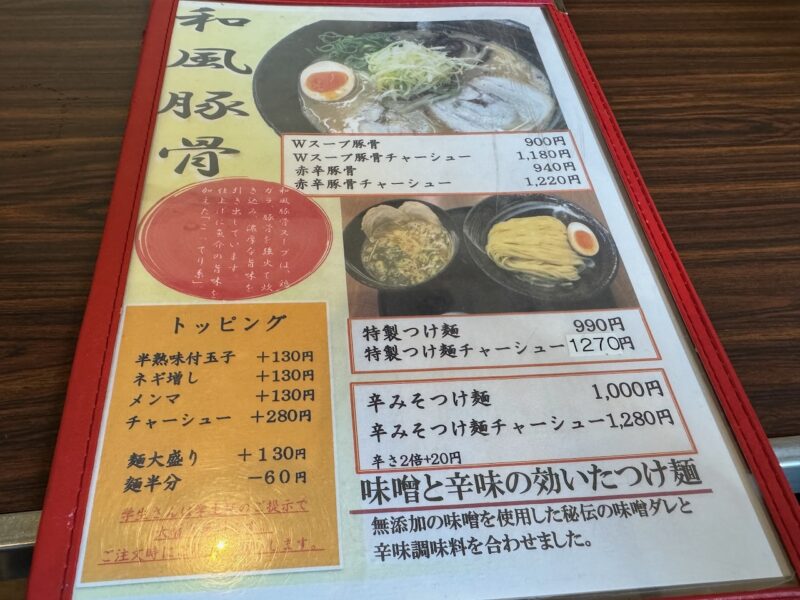 和風豚骨
Wスープ豚骨 900円
Wスープ豚骨チャーシュー 1,180円
赤辛豚骨 940円
赤辛豚骨チャーシュー 1,220円
和風豚骨スープは、鶏
ガラ、豚骨を強火で炊
き込み、濃厚な旨味を
引き出しています
仕上げに魚介の旨味を
加えた「こってり系」
特製つけ麺 990円
特製つけ麺チャーシュー 1270円
トッピング
半熟味付玉子 +130円
ネギ増し +130円
メンマ +130円
チャーシュー +280円
麺大盛り +130円
麺半分 -60円
学生さんは学生証のご提示で
ご注文時は
ます。
辛みそつけ麺 1,000円
辛みそつけ麺チャーシュー 1,280円
辛さ2倍+20円
味噌と辛味の効いたつけ麺
無添加の味噌を使用した秘伝の味噌ダレと
辛味調味料を合わせました。